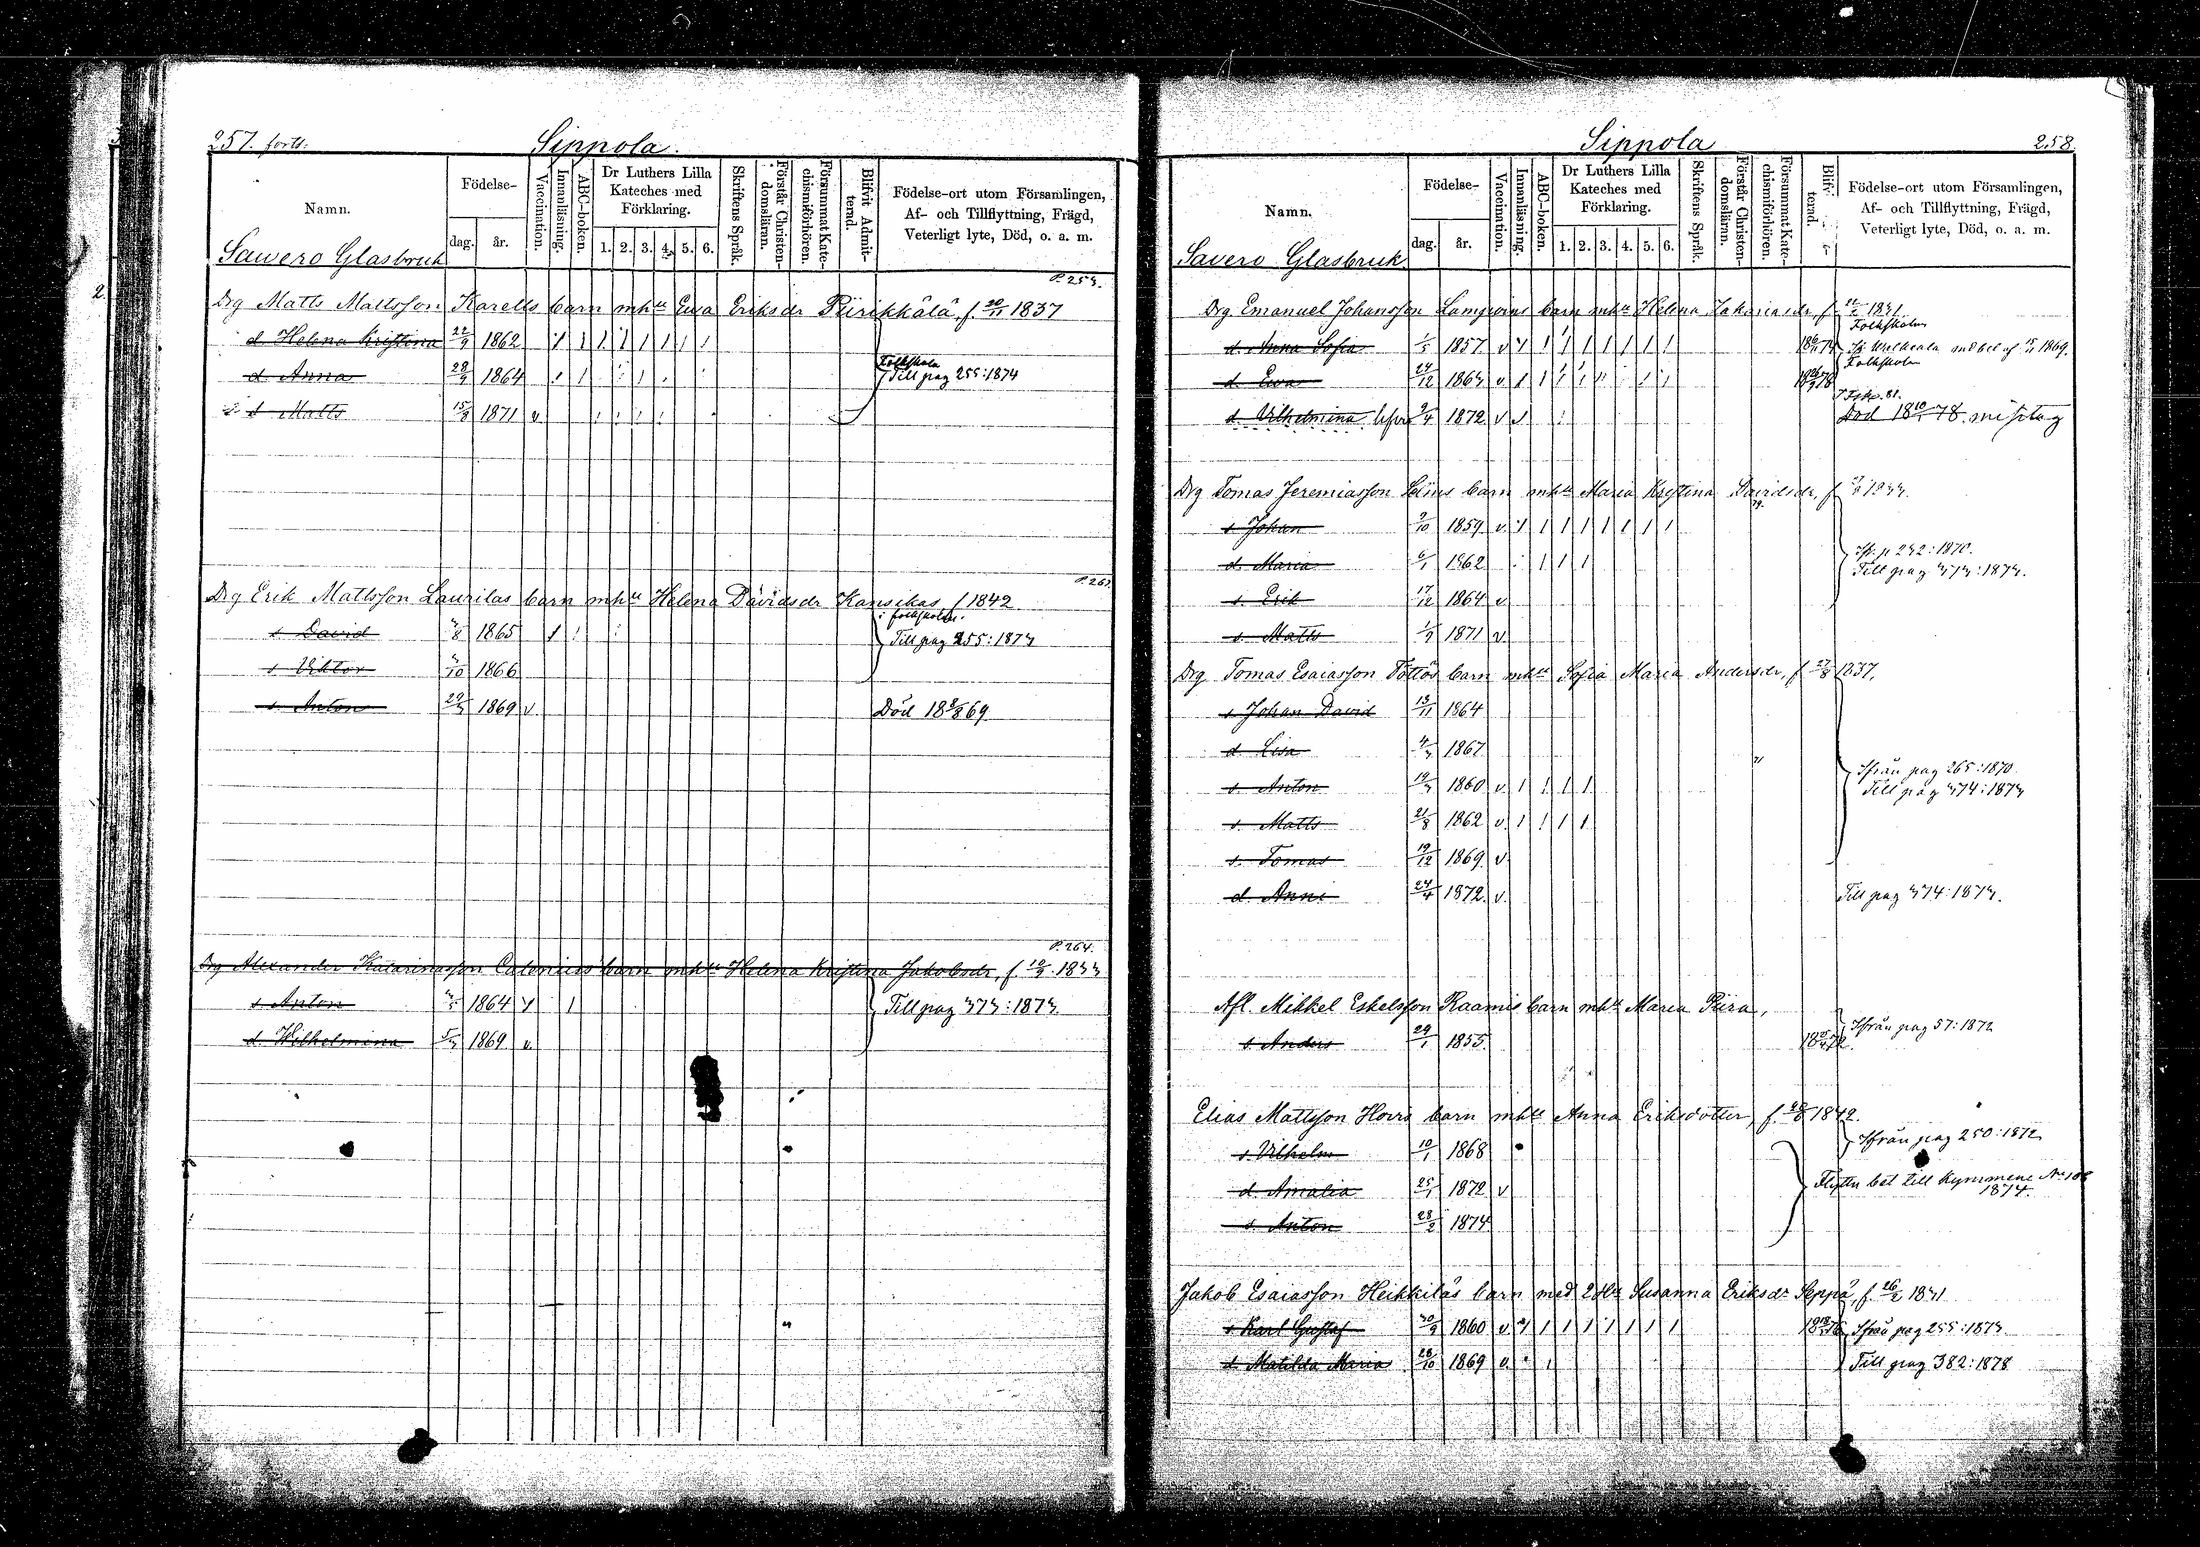 257. forts:
Sippola.
Namn.
Födelse-
dag. år.
Vaccination.
Innanläsning.
ABC-boken.
Dr Luthers Lilla Kateches med Förklaring.
1. 2. 3. 4. 5. 6.
Skriftens Språk.
Förstår Christendomsläran.
Försummat Katechismiförhören.
Blifvit Admitterad.
Födelse-ort utom Församlingen,
Af- och Tillflyttning, Frägd,
Veterligt lyte, Död, o. a. m.
Sawero Glasbruk
P. 253.
Drg Matts Mattsson Karells barn mhu Ewa Eriksdr Piirikkälä, f 20/11 1837
d Helena Kristina 22/9 1862
Folkskola
d. Anna 28/9 1864 Till pag 255:1874
s Matts 15/8 1871 v
P. 263
Drg Erik Mattsson Laurilas barn mhu Helena Davidsdr Kansikas f 1842
i folkskolan.
s David 3/8 1865 Till pag 255:1873
s Viktor 3/10 1866
s Anton 29/3 1869 v Död 18 8/8 69
P. 264.
Drg Alexander Katarinasson Calenius barn mhu Helena Kristina Jakobsdr, f 10/9 1833
s Anton 3/5 1864 v Till pag 373:1873
d. Wilhelmina 5/3 1869 v.
Sippola
258.
Namn.
Födelse-
dag. år.
Vaccination.
Innanläsning.
ABC-boken.
Dr Luthers Lilla Kateches med Förklaring.
1. 2. 3. 4. 5. 6.
Skriftens Språk.
Förstår Christendomsläran.
Försummat Katechismiförhören.
Blifv terad.
Födelse-ort utom Församlingen,
Af- och Tillflyttning, Frägd,
Veterligt lyte, Död, o. a. m.
Savero Glasbruk.
Drg Emanuel Johansson barn mhu Helena Zakariasdr f 1831.
Folkskolan
d. Anna Sofia 1/5 1857 v 1869.
Folkskolan
d. Ewa 24/12 1863 v.
d. Vilhelmina 9/4 1872 v Död 18 10/1 78. misstag
Drg Tomas Jeremiasson barn mhu Maria Kristina Davidsdr, f 1833.
s Johan 9/10 1859 v.
d. Maria 6/1 1862 Ifr. p 242:1870.
Till pag 373:1873.
s. Erik 17/12 1864 v.
s. Matts 1/9 1871 v.
Drg Tomas Esaiasson Töttös barn mhu Sofia Maria Andersdr, f 27/8 1837,
s Johan David 13/11 1864
d. Lisa 4/3 1867
s. Anton 19/3 1860 v. Ifrån pag 265:1870
Till pag 374:1873
s. Matts 21/8 1862 v.
s. Tomas 19/12 1869 v
d. Anni 24/4 1872. v. Till pag 374:1873.
Afl. Mikkel Eskelsson Raamis barn mhu Maria Piira,
s. Anders 29/1 1855. Ifrån pag 57:1872
Elias Mattsson Horro barn mhu Anna Eriksdotter, f. 1842.
Ifrån pag 250:1872
s. Vilhelm 10/1 1868
d. Amalia 25/1 1872 v Flyttn bet till Kymmene No 108
1874.
s. Anton 28/2 1874
Jakob Esaiasson Heikkiläs barn med 2 Hu Susanna Eriksdr Seppä, f. 26/2 1831
s Karl Gustaf 30/9 1860 v. Ifrån pag 255:1873.
d. Matilda Maria 28/10 1869 v. Till pag 382:1878